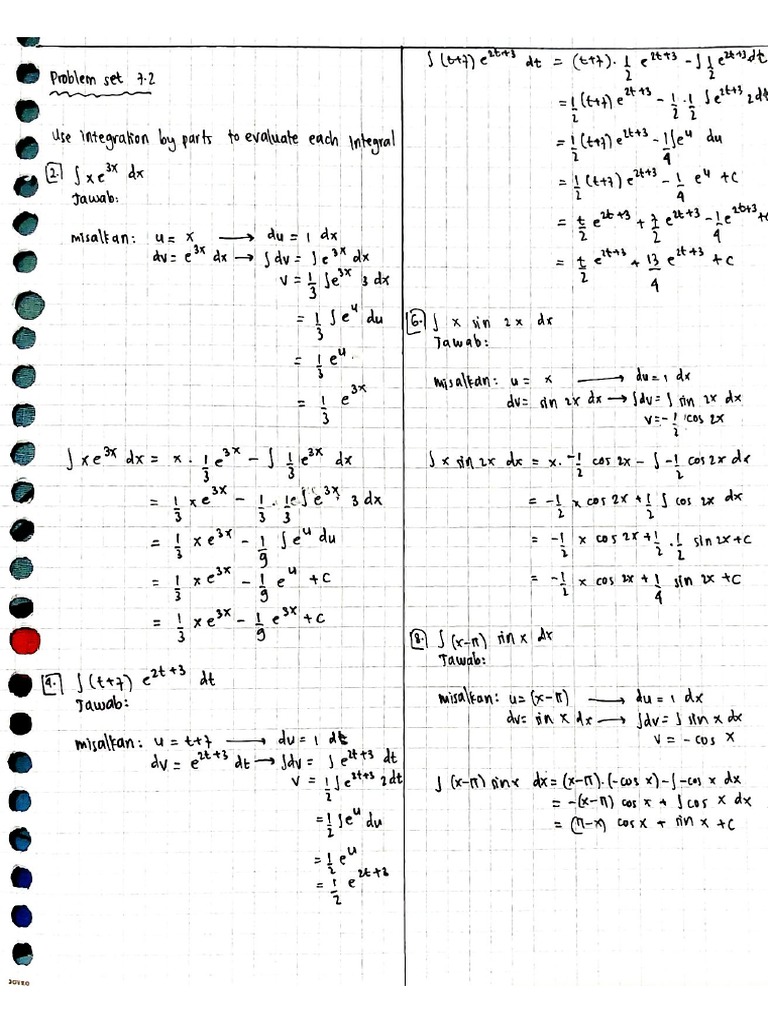 Problem set 7.2
Use integration by parts to evaluate each Integral
2. ∫ x e^{3x} dx
Jawab:
misalkan: u = x ⟶ du = 1 dx
dv = e^{3x} dx → ∫dv = ∫e^{3x} dx
v = 1/3 ∫e^{3x} 3 dx
= 1/3 ∫e^u du
= 1/3 e^u
= 1/3 e^{3x}
∫ x e^{3x} dx = x · 1/3 e^{3x} − ∫ 1/3 e^{3x} dx
= 1/3 x e^{3x} − 1/3 · 1/3 ∫ e^{3x} 3 dx
= 1/3 x e^{3x} − 1/9 ∫e^u du
= 1/3 x e^{3x} − 1/9 e^u + C
= 1/3 x e^{3x} − 1/9 e^{3x} + C
4. ∫(t+7) e^{2t+3} dt
Jawab:
misalkan: u = t+7 ⟶ du = 1 dt
dv = e^{2t+3} dt → ∫dv = ∫ e^{2t+3} dt
v = 1/2 ∫e^{2t+3} 2dt
= 1/2 ∫e^u du
= 1/2 e^u
= 1/2 e^{2t+3}
∫(t+7) e^{2t+3} dt = (t+7) · 1/2 e^{2t+3} − ∫ 1/2 e^{2t+3} dt
= 1/2 (t+7) e^{2t+3} − 1/2 · 1/2 ∫e^{2t+3} 2dt
= 1/2 (t+7) e^{2t+3} − 1/4 ∫e^u du
= 1/2 (t+7) e^{2t+3} − 1/4 e^u + C
= t/2 e^{2t+3} + 7/2 e^{2t+3} − 1/4 e^{2t+3} +
= t/2 e^{2t+3} + 13/4 e^{2t+3} + C
6. ∫ x sin 2x dx
Jawab:
misalkan: u = x ⟶ du = 1 dx
dv = sin 2x dx → ∫dv = ∫ sin 2x dx
v = −1/2 cos 2x
∫ x sin 2x dx = x · −1/2 cos 2x − ∫ −1/2 cos 2x dx
= −1/2 x cos 2x + 1/2 ∫ cos 2x dx
= −1/2 x cos 2x + 1/2 · 1/2 sin 2x + C
= −1/2 x cos 2x + 1/4 sin 2x + C
8. ∫(x−π) sin x dx
Jawab:
misalkan: u = (x−π) ⟶ du = 1 dx
dv = sin x dx ⟶ ∫dv = ∫ sin x dx
v = − cos x
∫ (x−π) sin x dx = (x−π) · (−cos x) − ∫ −cos x dx
= −(x−π) cos x + ∫cos x dx
= (π−x) cos x + sin x + C